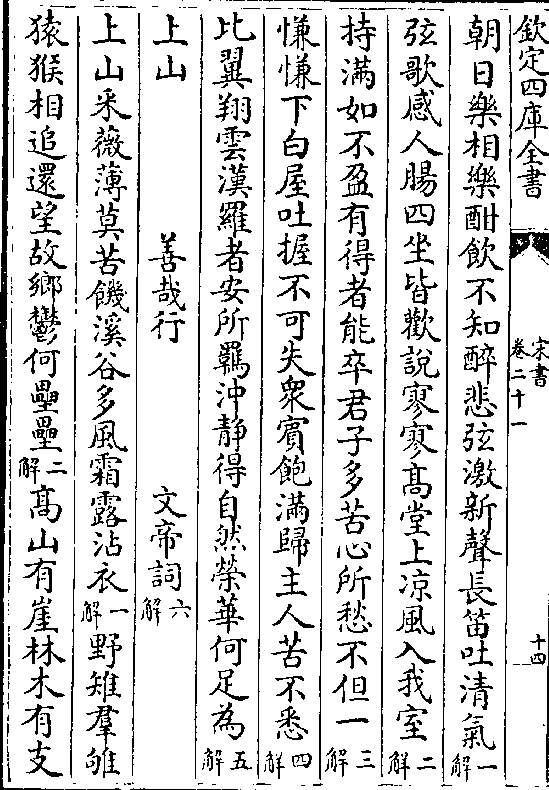 欽定四庫全書
宋書
卷二十一
十四
朝日樂相樂酣飲不知醉悲弦激新聲長笛吐清氣一解
弦歌感人腸四坐皆歡說寥寥高堂上凉風入我室二解
持滿如不盈有得者能卒君子多苦心所愁不但一三解
慊慊下白屋吐握不可失衆賓飽滿歸主人苦不悉四解
比翼翔雲漢羅者安所羈沖靜得自然榮華何足為五解
上山 善哉行 文帝詞六解
上山采薇薄莫苦饑溪谷多風霜露沾衣一解野雉羣雊
猿猴相追還望故鄉鬱何壘壘二解高山有崖林木有支